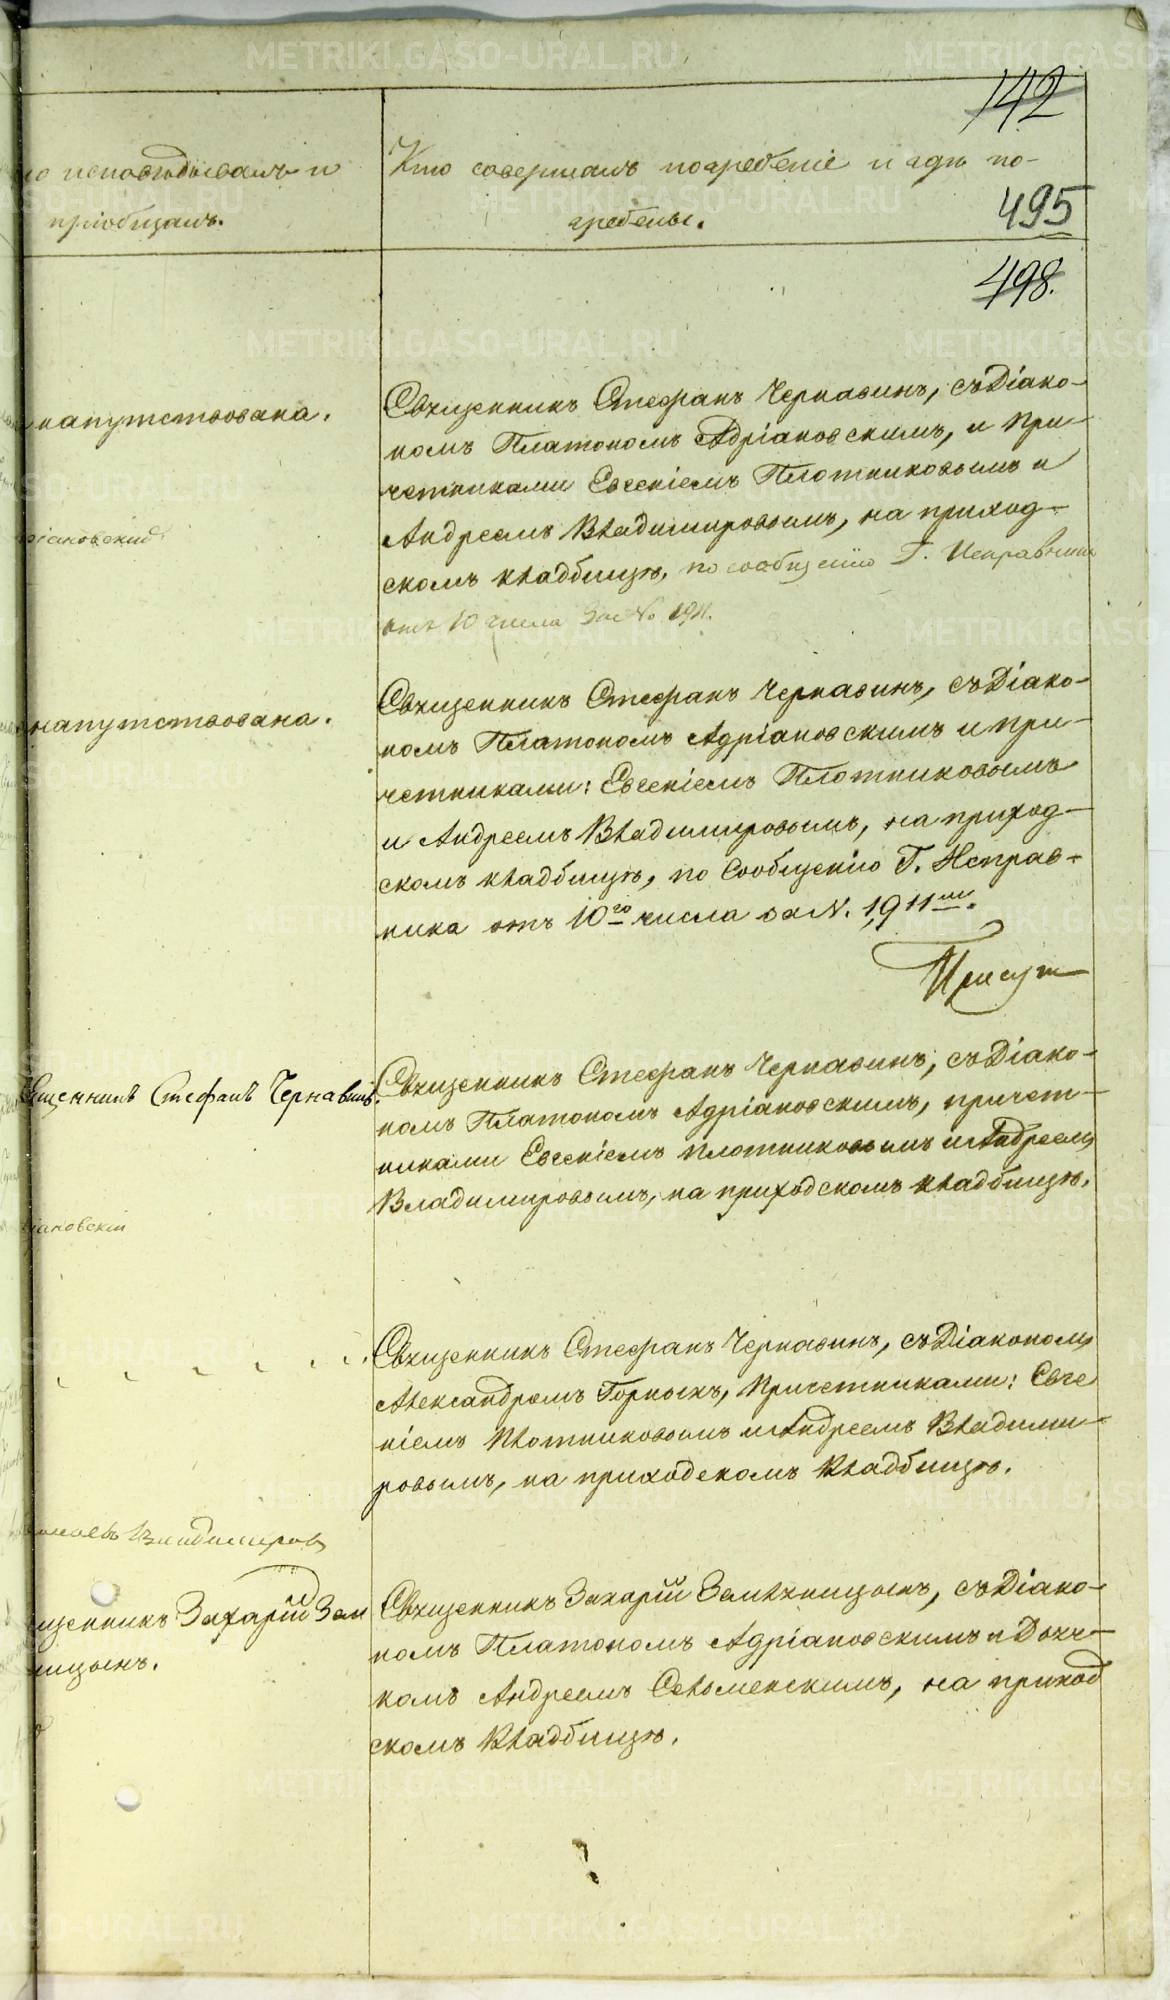 142
Кто исповѣдывалъ и
пріобщалъ.
Кто совершалъ погребеніе и гдѣ по-
гребены.
495
498.
напутствована.
Священникъ Стефанъ Чернавинъ, съ Діако-
номъ Платономъ Адріановскимъ, и При-
четниками Евгеніемъ Плотниковымъ и
Андреемъ Владимировымъ, на приход-
скомъ кладбищѣ, по сообщенію Г. Исправника
отъ 10 числа За № 1911.
ріановскій
напутствована.
Священникъ Стефанъ Чернавинъ, съ Діако-
номъ Платономъ Адріановскимъ и при-
четниками: Евгеніемъ Плотниковымъ
и Андреемъ Владимировымъ, на приход-
скомъ кладбищѣ, по Сообщенію Г. Исправ-
ника отъ 10го числа за N. 1911мъ.
Присут
Священникъ Стефанъ Чернавинъ.
Священникъ Стефанъ Чернавинъ, съ Діако-
номъ Платономъ Адріановскимъ, причет-
никами Евгеніемъ Плотниковымъ и Андреемъ
Владимировымъ, на приходскомъ кладбищѣ.
іановскій
Священникъ Стефанъ Чернавинъ, съ Діакономъ
Александромъ Горныхъ, Причетниками: Евге
ніемъ Плотниковымъ и Андреемъ Владими-
ровымъ, на приходскомъ Кладбищѣ.
Владимировъ
щенникъ Захарій Зем
ницынъ.
Священникъ Захарій Земляницынъ, съ Діако-
номъ Платономъ Адріановскимъ и Дьяч-
комъ Андреемъ Сельменскимъ, на приход
скомъ Кладбищѣ.
METRIKI.GASO-URAL.RU